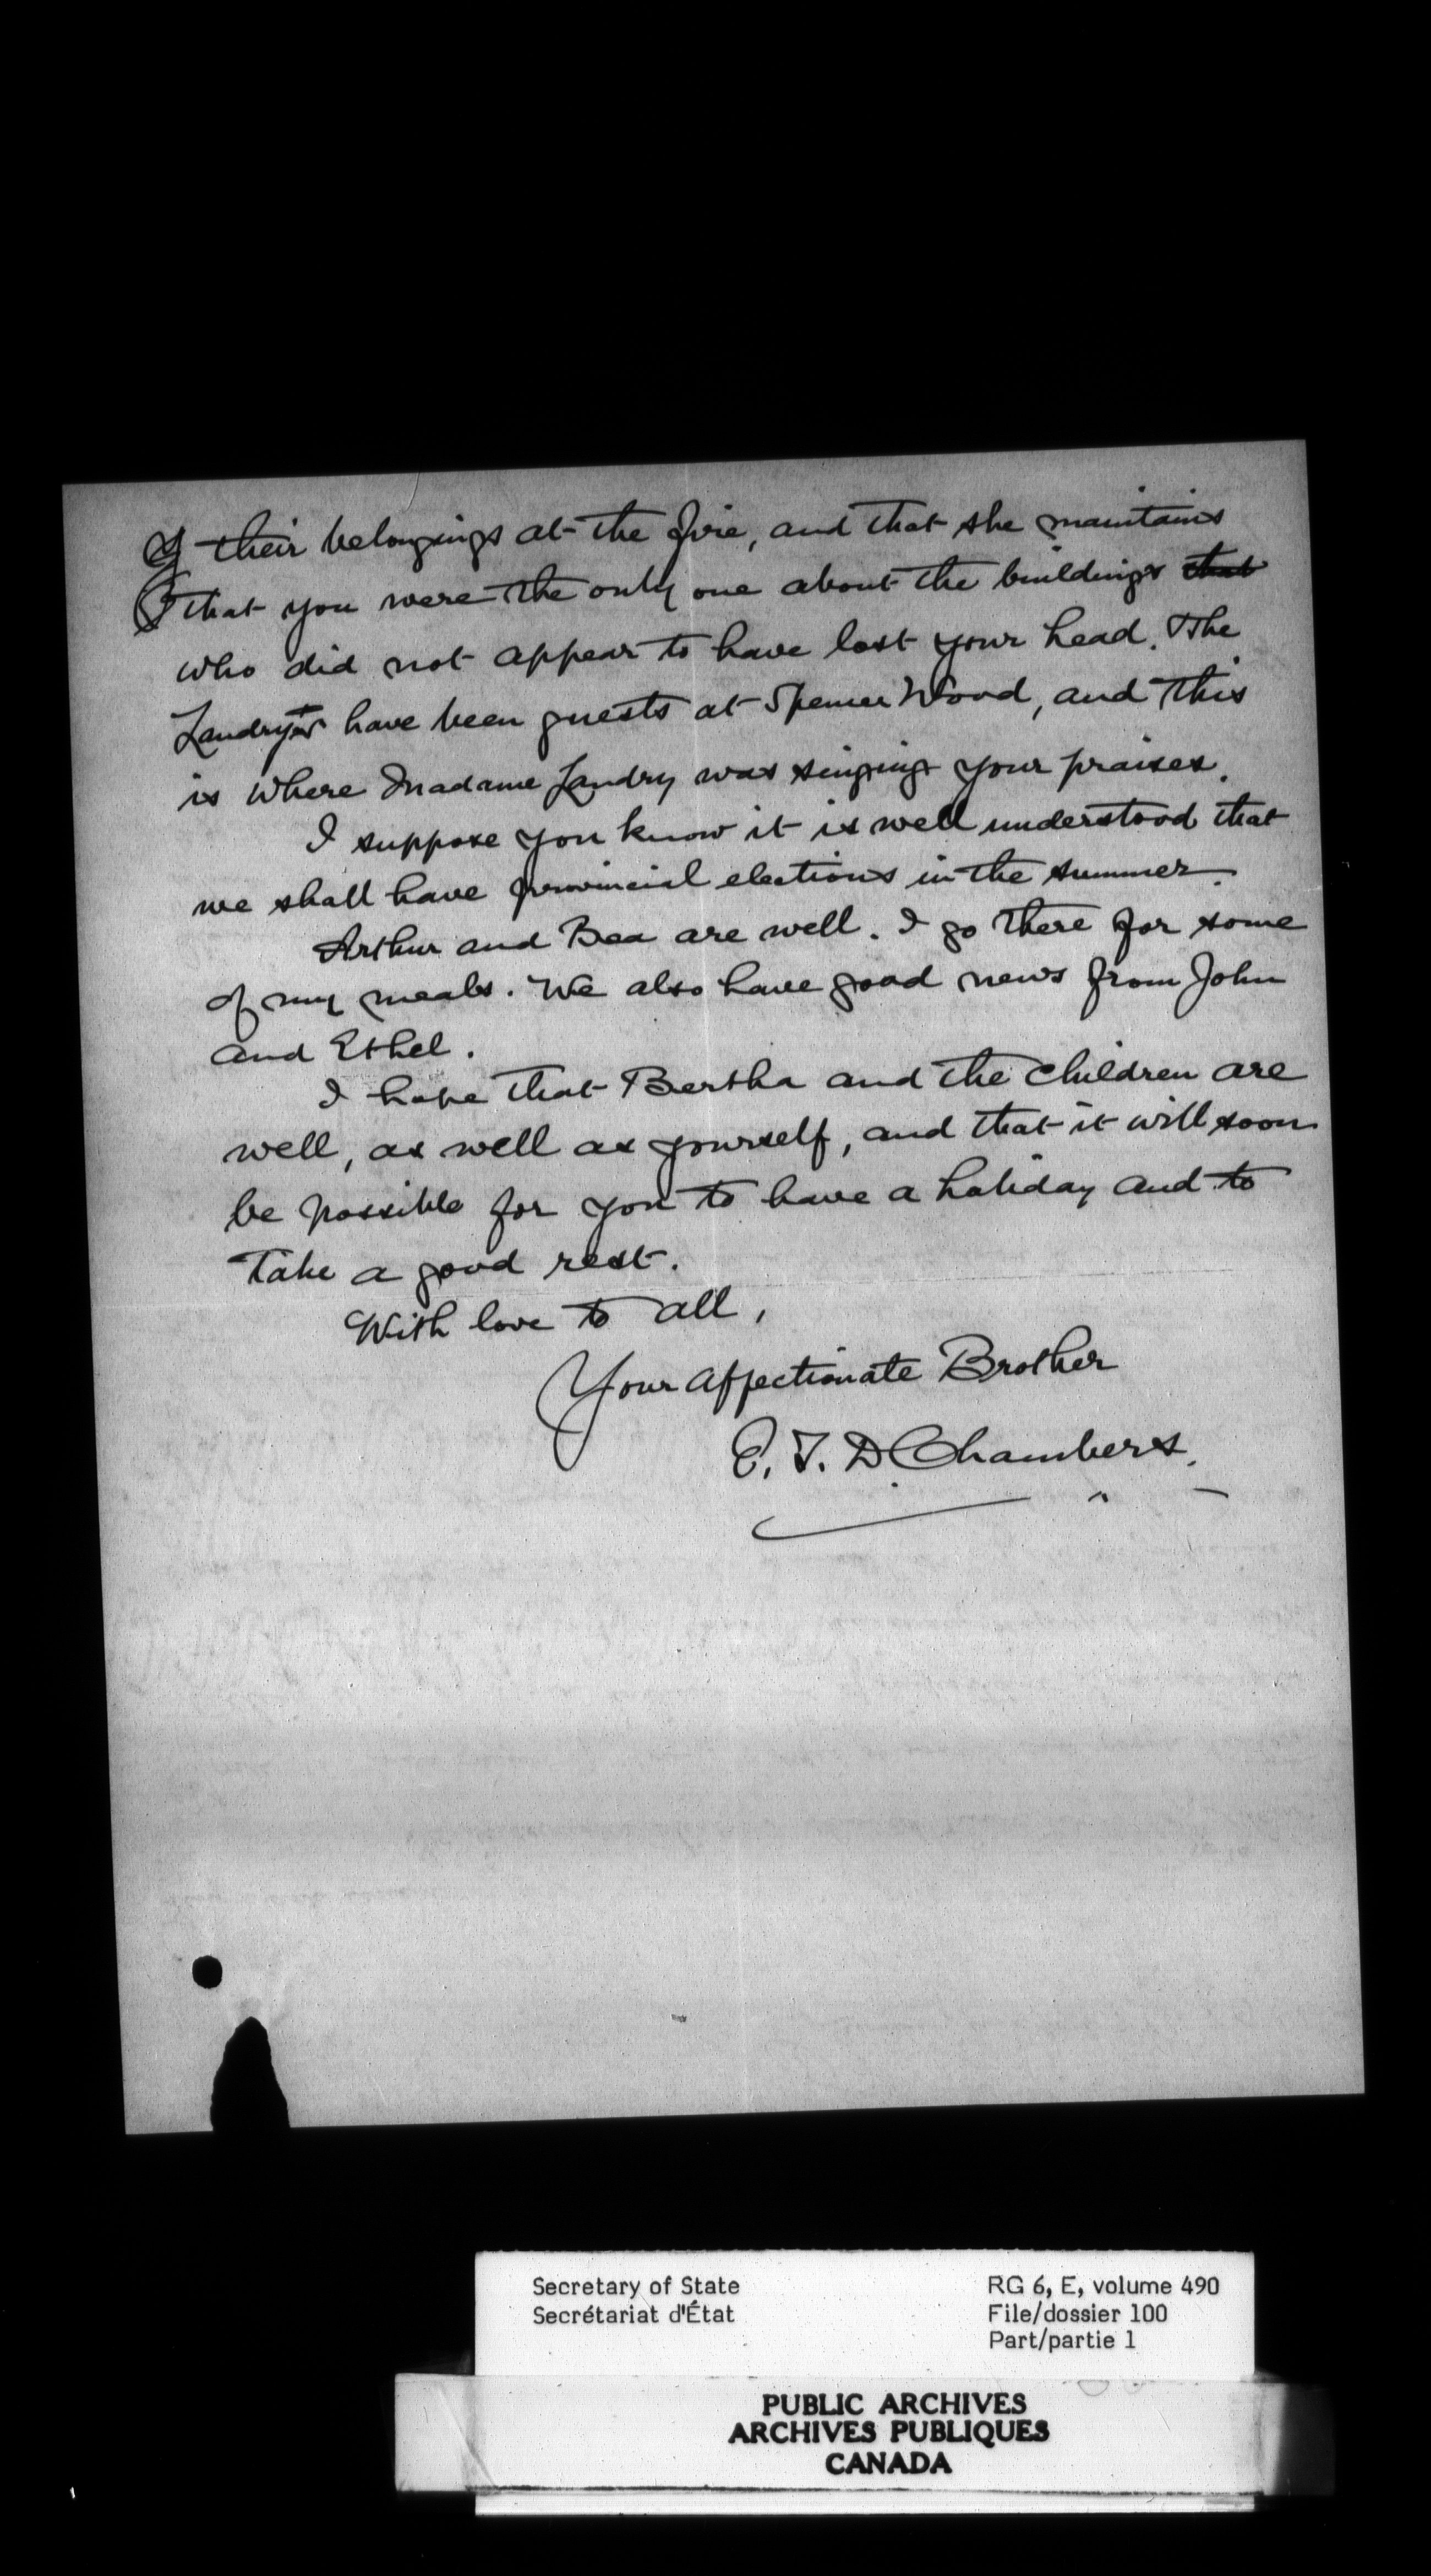 of their belongings at the fire, and that she maintains
that you were the only one about the buildings that
who did not appear to have lost your head. The
Landrys have been guests at Spencer Wood, and this
is where Madame Landry was singing your praises.
I suppose you know it is well understood that
we shall have provincial elections in the summer.
Arthur and Bea are well. I go there for some
of my meals. We also have good news from John
and Ethel.
I hope that Bertha and the children are
well, as well as yourself, and that it will soon
be possible for you to have a holiday and to
take a good rest.
With love to all,
Your affectionate Brother
E. T. D. Chambers.
Secretary of State
Secrétariat d'État
RG 6, E, volume 490
File/dossier 100
Part/partie 1
PUBLIC ARCHIVES
ARCHIVES PUBLIQUES
CANADA